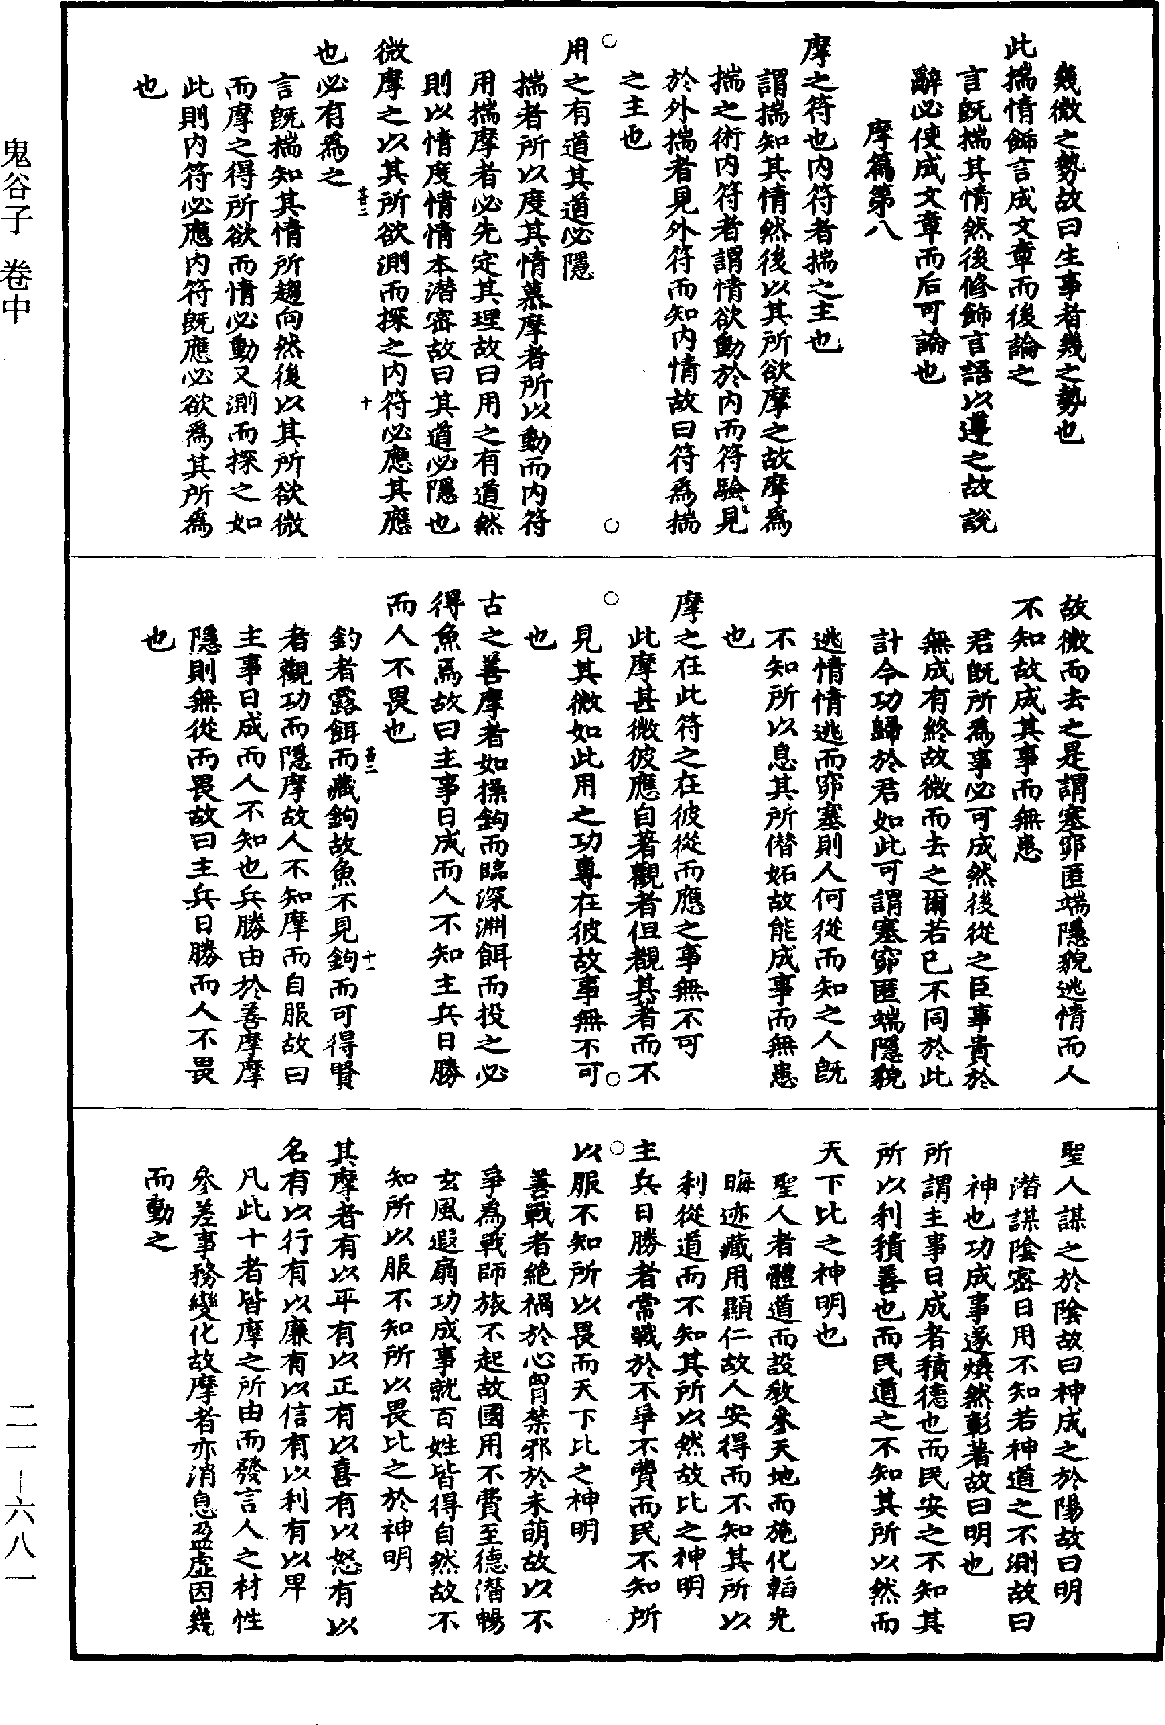 幾微之勢故曰生事者幾之勢也
此揣情飾言成文章而後論之
言既揣其情然後修飾言語以導之故說
辭必使成文章而后可論也
摩篇第八
摩之符也內符者揣之主也
謂揣知其情然後以其所欲摩之故摩為
揣之術內符者謂情欲動於內而符驗見
於外揣者見外符而知內情故曰符為揣
之主也
用之有道其道必隱
揣者所以度其情慕摩者所以動而內符
用揣摩者必先定其理故曰用之有道然
則以情度情情本潛密故曰其道必隱也
微摩之以其所欲測而探之內符必應其應
也必有為之
言既揣知其情所趨向然後以其所欲微
而摩之得所欲而情必動又測而探之如
此則內符必應內符既應必欲為其所為
也
故微而去之是謂塞窌匿端隱貌逃情而人
不知故成其事而無患
君既所為事必可成然後從之臣事貴於
無成有終故微而去之爾若己不同於此
計令功歸於君如此可謂塞窌匿端隱貌
逃情情逃而窌塞則人何從而知之人既
不知所以息其所僭妬故能成事而無患
也
摩之在此符之在彼從而應之事無不可
此摩甚微彼應自著觀者但覩其著而不
見其微如此用之功專在彼故事無不可
也
古之善摩者如操鈎而臨深淵餌而投之必
得魚焉故曰主事日成而人不知主兵日勝
而人不畏也
釣者露餌而藏鈎故魚不見鈎而可得賢
者觀功而隱摩故人不知摩而自服故曰
主事日成而人不知也兵勝由於善摩摩
隱則無從而畏故曰主兵日勝而人不畏
也
聖人謀之於陰故曰神成之於陽故曰明
潛謀陰密日用不知若神道之不測故曰
神也功成事遂煥然彰著故曰明也
所謂主事日成者積德也而民安之不知其
所以利積善也而民道之不知其所以然而
天下比之神明也
聖人者體道而設教參天地而施化韜光
晦迹藏用顯仁故人安得而不知其所以
利從道而不知其所以然故比之神明
主兵日勝者常戰於不爭不費而民不知所
以服不知所以畏而天下比之神明
善戰者絕禍於心胷禁邪於未萌故以不
爭為戰師旅不起故國用不費至德潛暢
玄風遐扇功成事就百姓皆得自然故不
知所以服不知所以畏比之於神明
其摩者有以平有以正有以喜有以怒有以
名有以行有以廉有以信有以利有以卑
凡此十者皆摩之所由而發言人之材性
參差事務變化故摩者亦消息盈虛因幾
而動之
鬼谷子 卷中
二一－六八一